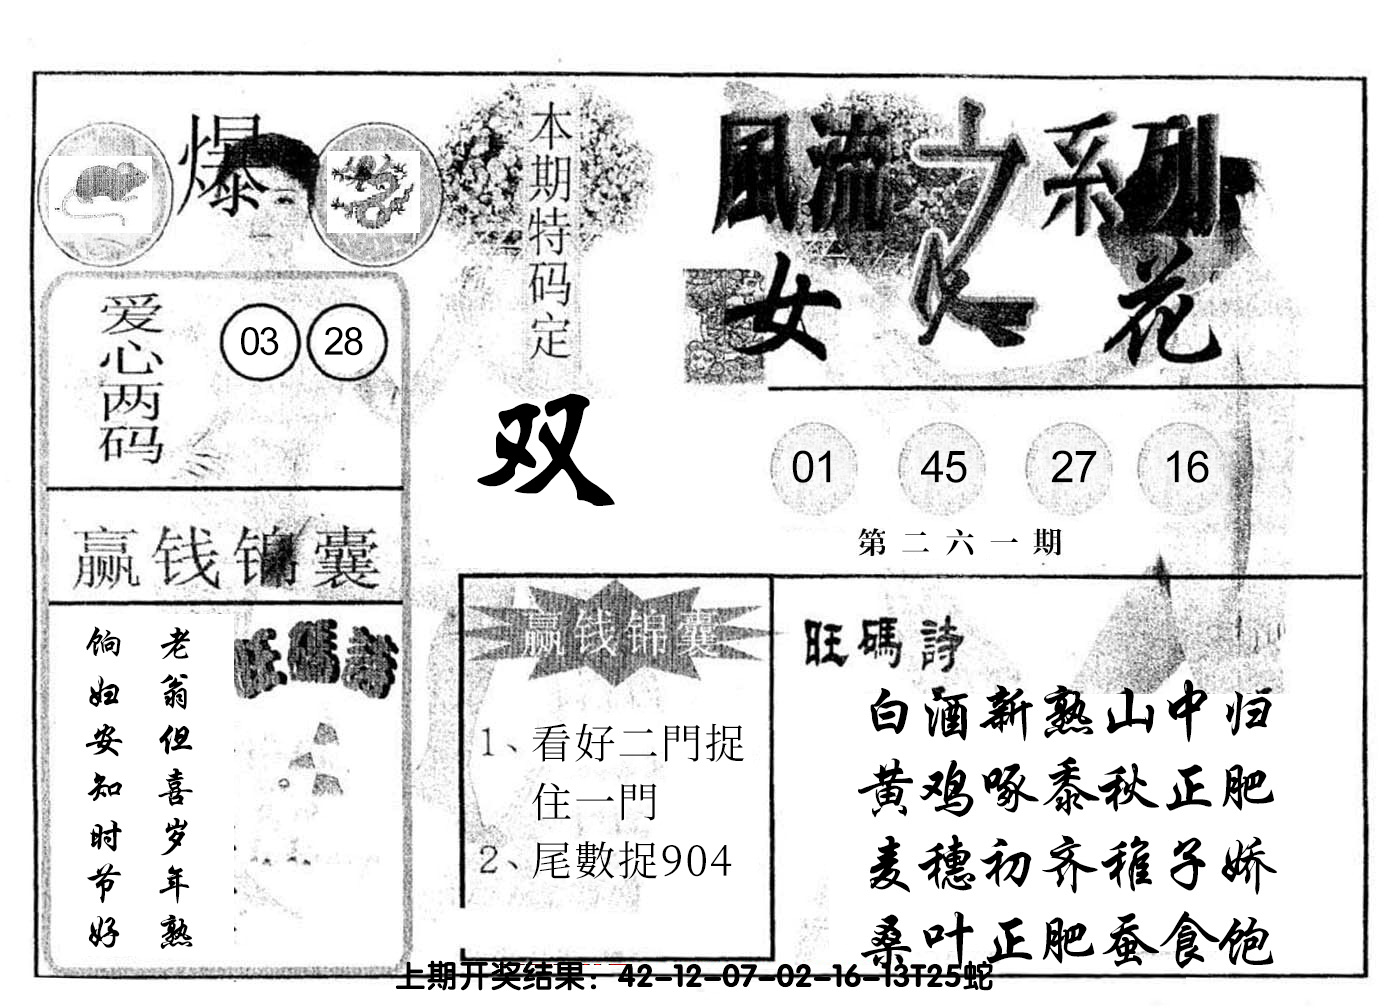 爆
本期特码定
双
風流之系列
女人花
爱心两码
03 28
01 45 27 16
第二六一期
赢钱锦囊
老翁但喜岁年熟
饷妇安知时节好
旺碼詩
赢钱锦囊
1、看好二門捉
住一門
2、尾數捉904
旺碼詩
白酒新熟山中归
黄鸡啄黍秋正肥
麦穗初齐稚子娇
桑叶正肥蚕食饱
上期开奖结果：42-12-07-02-16-13T25蛇